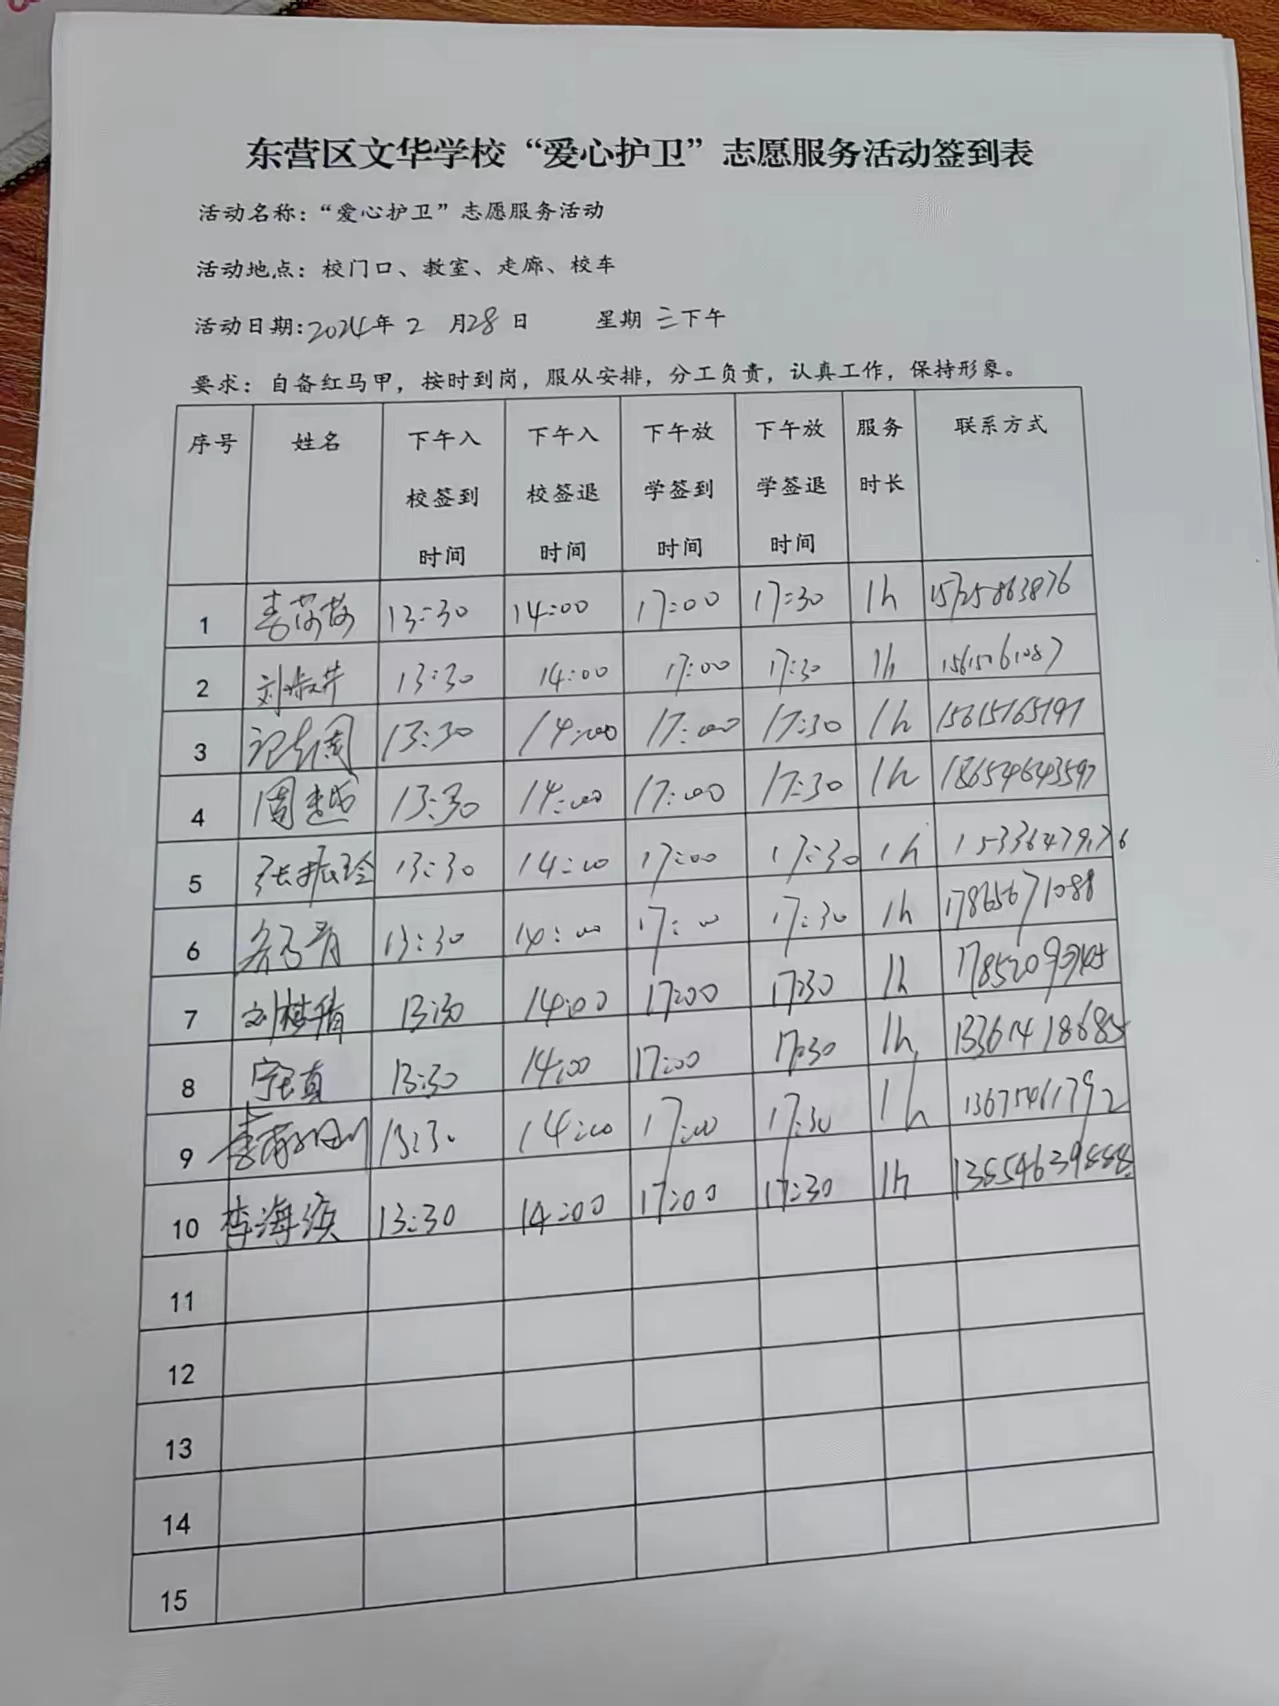 东营区文华学校“爱心护卫”志愿服务活动签到表
活动名称：“爱心护卫”志愿服务活动
活动地点：校门口、教室、走廊、校车
活动日期:2024年 2 月28日 星期 三下午
要求：自备红马甲，按时到岗，服从安排，分工负责，认真工作，保持形象。
序号 姓名 下午入校签到时间 下午入校签退时间 下午放学签到时间 下午放学签退时间 服务时长 联系方式
1 13:30 14:00 17:00 17:30 1h 15725863876
2 13:30 14:00 17:00 17:30 1h 15615061087
3 13:30 14:00 17:00 17:30 1h 15615765197
4 周越 13:30 14:00 17:00 17:30 1h 18654643597
5 张振玲 13:30 14:00 17:00 17:30 1h
6 13:30 14:00 17:00 17:30 1h 17865671088
7 刘梦倩 13:30 14:00 17:00 17:30 1h
8 宁真 13:30 14:00 17:00 17:30 1h 13361418685
9 13:30 14:00 17:00 17:30 1h 13675461792
10 李海滨 13:30 14:00 17:00 17:30 1h 13854639888
11
12
13
14
15